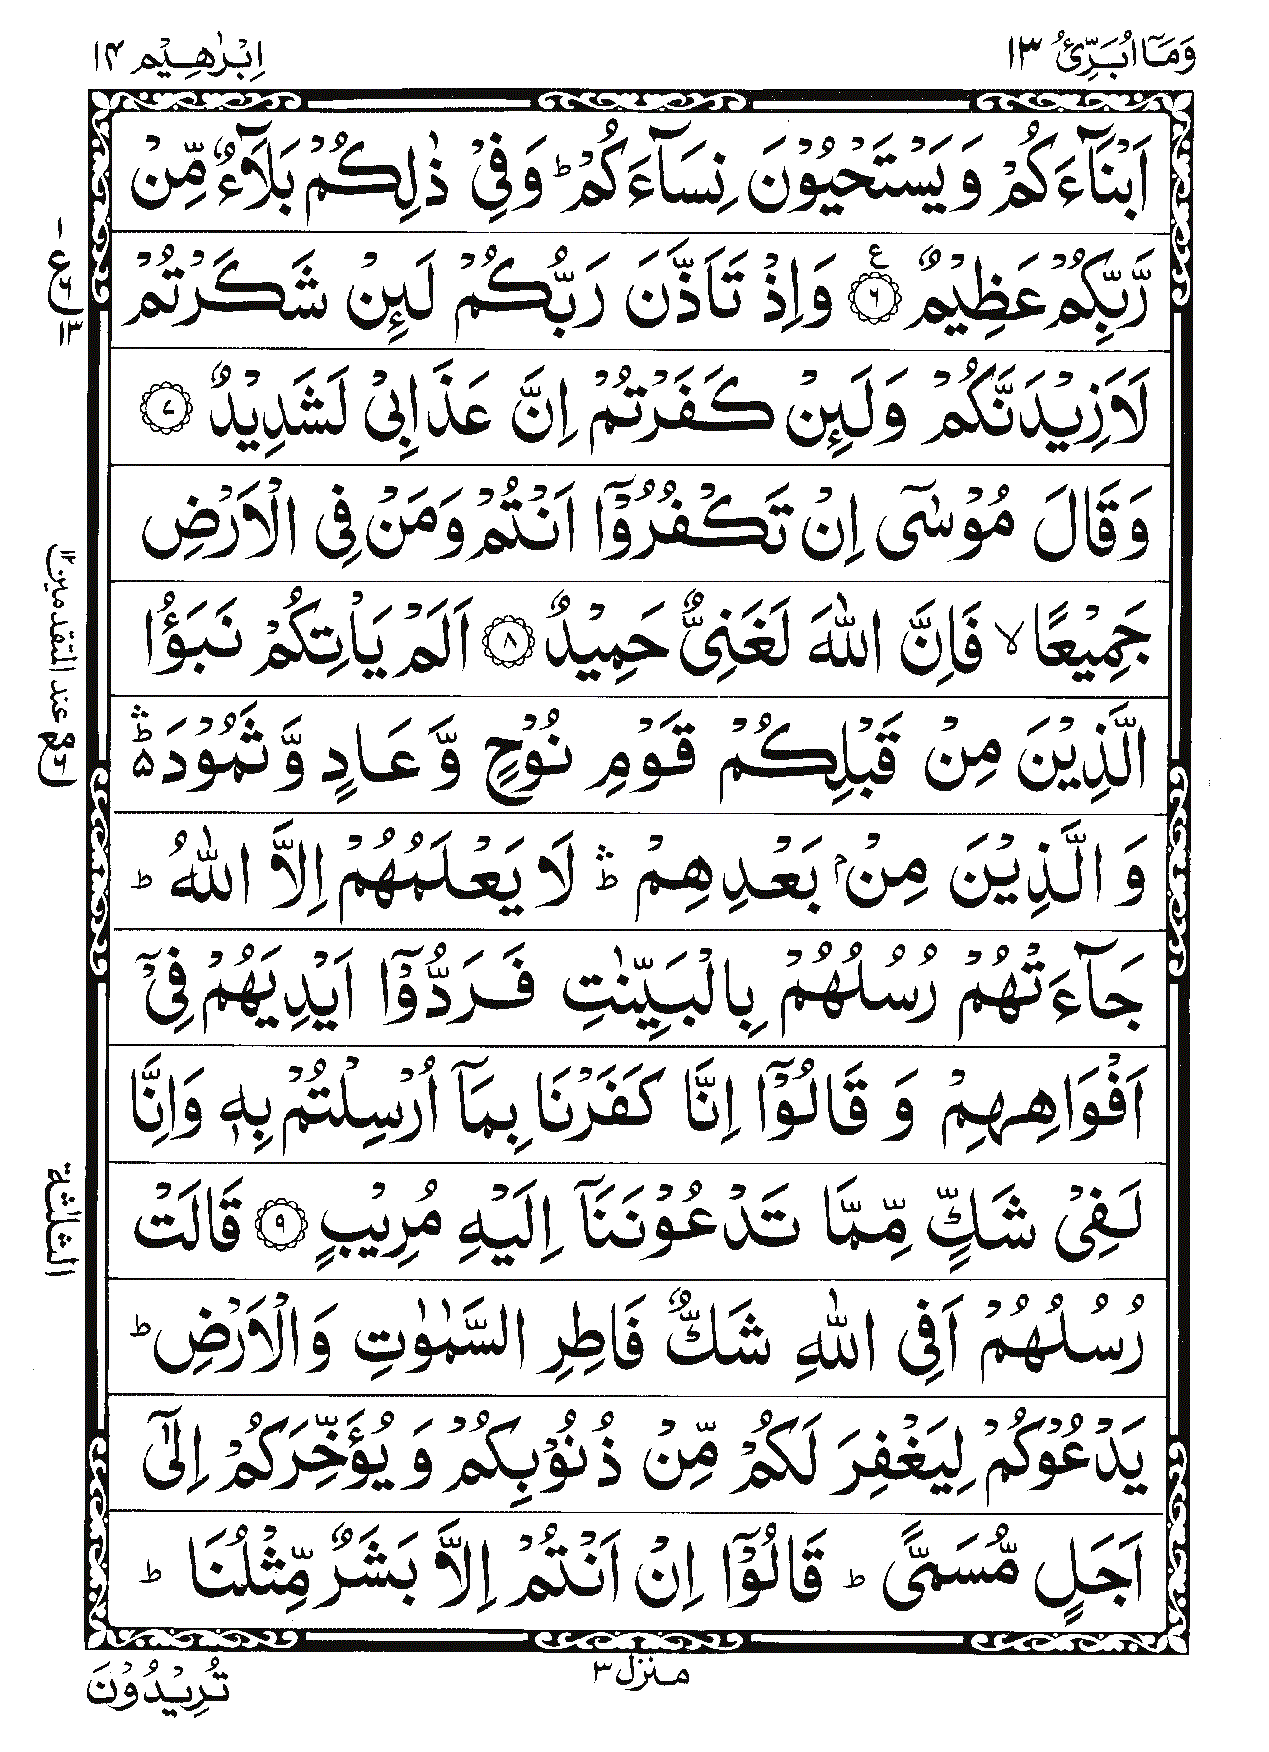 وَمَاۤ اُبَرِّئُ ١٣
اِبْرٰهِيْم ١٤
اَبْنَآءَكُمْ وَ يَسْتَحْيُوْنَ نِسَآءَكُمْ ؕ وَفِيْ ذٰلِكُمْ بَلَآءٌ مِّنْ
رَّبِّكُمْ عَظِيْمٌ ۧ ﴿٦﴾ وَاِذْ تَاَذَّنَ رَبُّكُمْ لَىِٕنْ شَكَرْتُمْ
لَاَزِيْدَنَّكُمْ وَلَىِٕنْ كَفَرْتُمْ اِنَّ عَذَابِيْ لَشَدِيْدٌ ﴿٧﴾
وَقَالَ مُوْسٰٓى اِنْ تَكْفُرُوْۤا اَنْتُمْ وَمَنْ فِي الْاَرْضِ
جَمِيْعًا ۙ فَاِنَّ اللّٰهَ لَغَنِيٌّ حَمِيْدٌ ﴿٨﴾ اَلَمْ يَاْتِكُمْ نَبَؤُا
الَّذِيْنَ مِنْ قَبْلِكُمْ قَوْمِ نُوْحٍ وَّ عَادٍ وَّ ثَمُوْدَ ۛؕ۵
وَ الَّذِيْنَ مِنْۢ بَعْدِهِمْ ۛؕ لَا يَعْلَمُهُمْ اِلَّا اللّٰهُ ؕ
جَآءَتْهُمْ رُسُلُهُمْ بِالْبَيِّنٰتِ فَرَدُّوْۤا اَيْدِيَهُمْ فِيْۤ
اَفْوَاهِهِمْ وَ قَالُوْۤا اِنَّا كَفَرْنَا بِمَاۤ اُرْسِلْتُمْ بِهٖ وَاِنَّا
لَفِيْ شَكٍّ مِّمَّا تَدْعُوْنَنَاۤ اِلَيْهِ مُرِيْبٍ ﴿٩﴾ قَالَتْ
رُسُلُهُمْ اَفِي اللّٰهِ شَكٌّ فَاطِرِ السَّمٰوٰتِ وَالْاَرْضِ ؕ
يَدْعُوْكُمْ لِيَغْفِرَ لَكُمْ مِّنْ ذُنُوْبِكُمْ وَ يُؤَخِّرَكُمْ اِلٰۤى
اَجَلٍ مُّسَمًّى ؕ قَالُوْۤا اِنْ اَنْتُمْ اِلَّا بَشَرٌ مِّثْلُنَا ؕ
منزل ٣
تُرِيْدُوْنَ
ع
عند المتقدمين ١٢
الثلثة